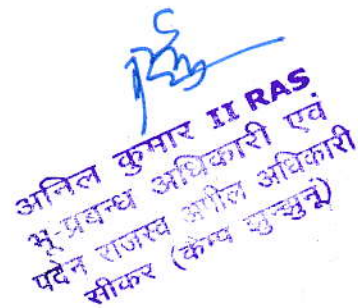 अनिल कुमार II RAS
भू-प्रबन्ध अधिकारी एवं
पदेन राजस्व अपील अधिकारी
सीकर (केम्प झुन्झुनू)